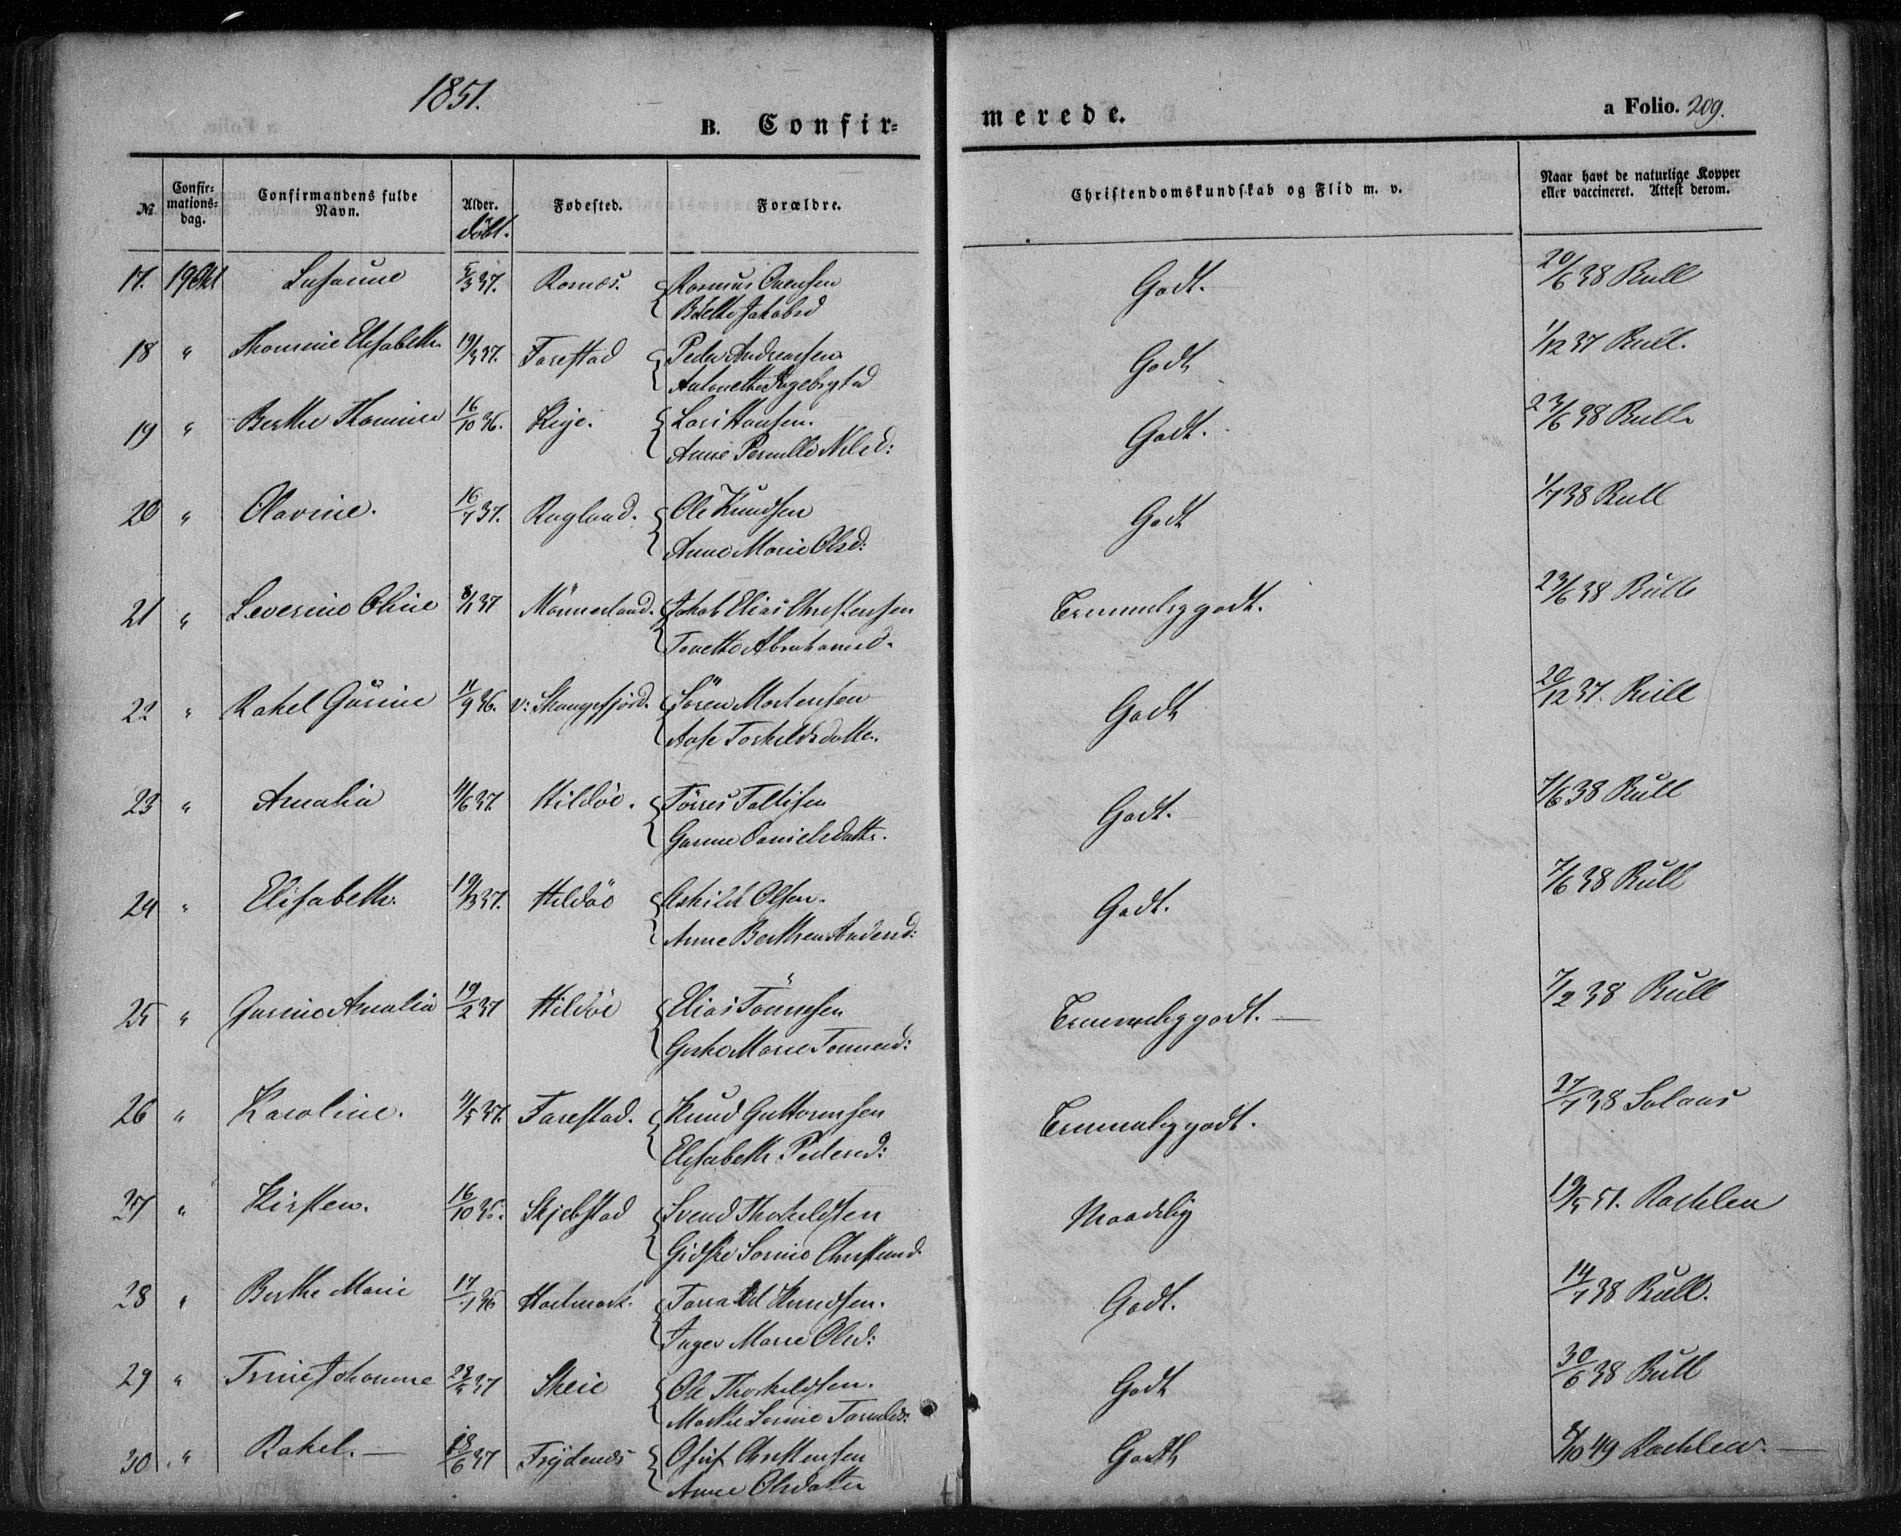 1851.
B. Confir- merede.
a Folio. 209.
№
Confir-
mations-
dag.
Confirmandens fulde
Navn.
Alder.
döbt.
Fødested.
Forældre.
Christendomskundskab og Flid m. v.
Naar havt de naturlige Kopper
eller vaccineret. Attest derom.
17. 19 Okt Susanne 5/3 37. Rosnæs. Rasmus
Jakobsd Godt. 20/6 38 Bull
18 " Thomine Elisabeth 19/3 37. Farestad Peder Andreassen
Antonette Ingebrgtsd Godt 1/12 37 Bull.
19 " Berthe Thomine 16/10 36. Skeje. Lars Hansen.
Anne Pernille Nilsd: Godt. 23/6 38 Bull
20 " Olavine. 16/7 37. Ragland. Ole Knudsen
Anne Marie Olsd: Godt 1/7 38 Bull
21 " Severine Oline 8/1 37 Mönnerland. Jakob Elias Christensen
Tonette Abrahamsd. Temmelig godt. 23/6 38 Bull
22 " Rakel Gurine 11/9 36. v: Skougsfjord. Sören Mortensen
Aase Torkildsdatter. Godt 20/12 37. Bull
23 " Amalia 11/6 37. Hildöe. Törres Tallisen
Gurine Danielsdattr. Godt. 7/6 38 Bull
24 " Elisabeth 19/3 37. Hildöe Eskild Olsen.
Anne Berthea Andersd: Godt. 7/6 38 Bull
25 " Gurine Amalia 19/2 37 Hildöe Elias Tönnesen
Marie Tønnesd: Temmelig godt. — 7/2 38 Bull
26 " Karoline. 11/5 37. Farestad. Knud Guttormsen
Elisabeth Pedersd: Temmelig godt. 27/7 38 Salvas
27 " Kirsten. 16/10 35. Skjebstad Svend Thorkildsen
Gidske Serine Christensd. Maadelig 19/5 51. Rachlen
28 " Berthe Marie 17/1 36 Harkmark. Knudsen.
Inger Marie Olsd: Godt. 14/7 38 Bull.
29 " Johanne 28/3 37 Skeie Ole Thorkildsen.
Serine Godt 30/6 38 Bull
30 " Rakel. — 18/6 37 Frydenes Christensen
Anne Olsdatter Godt 5/10 49 Rachlew. —